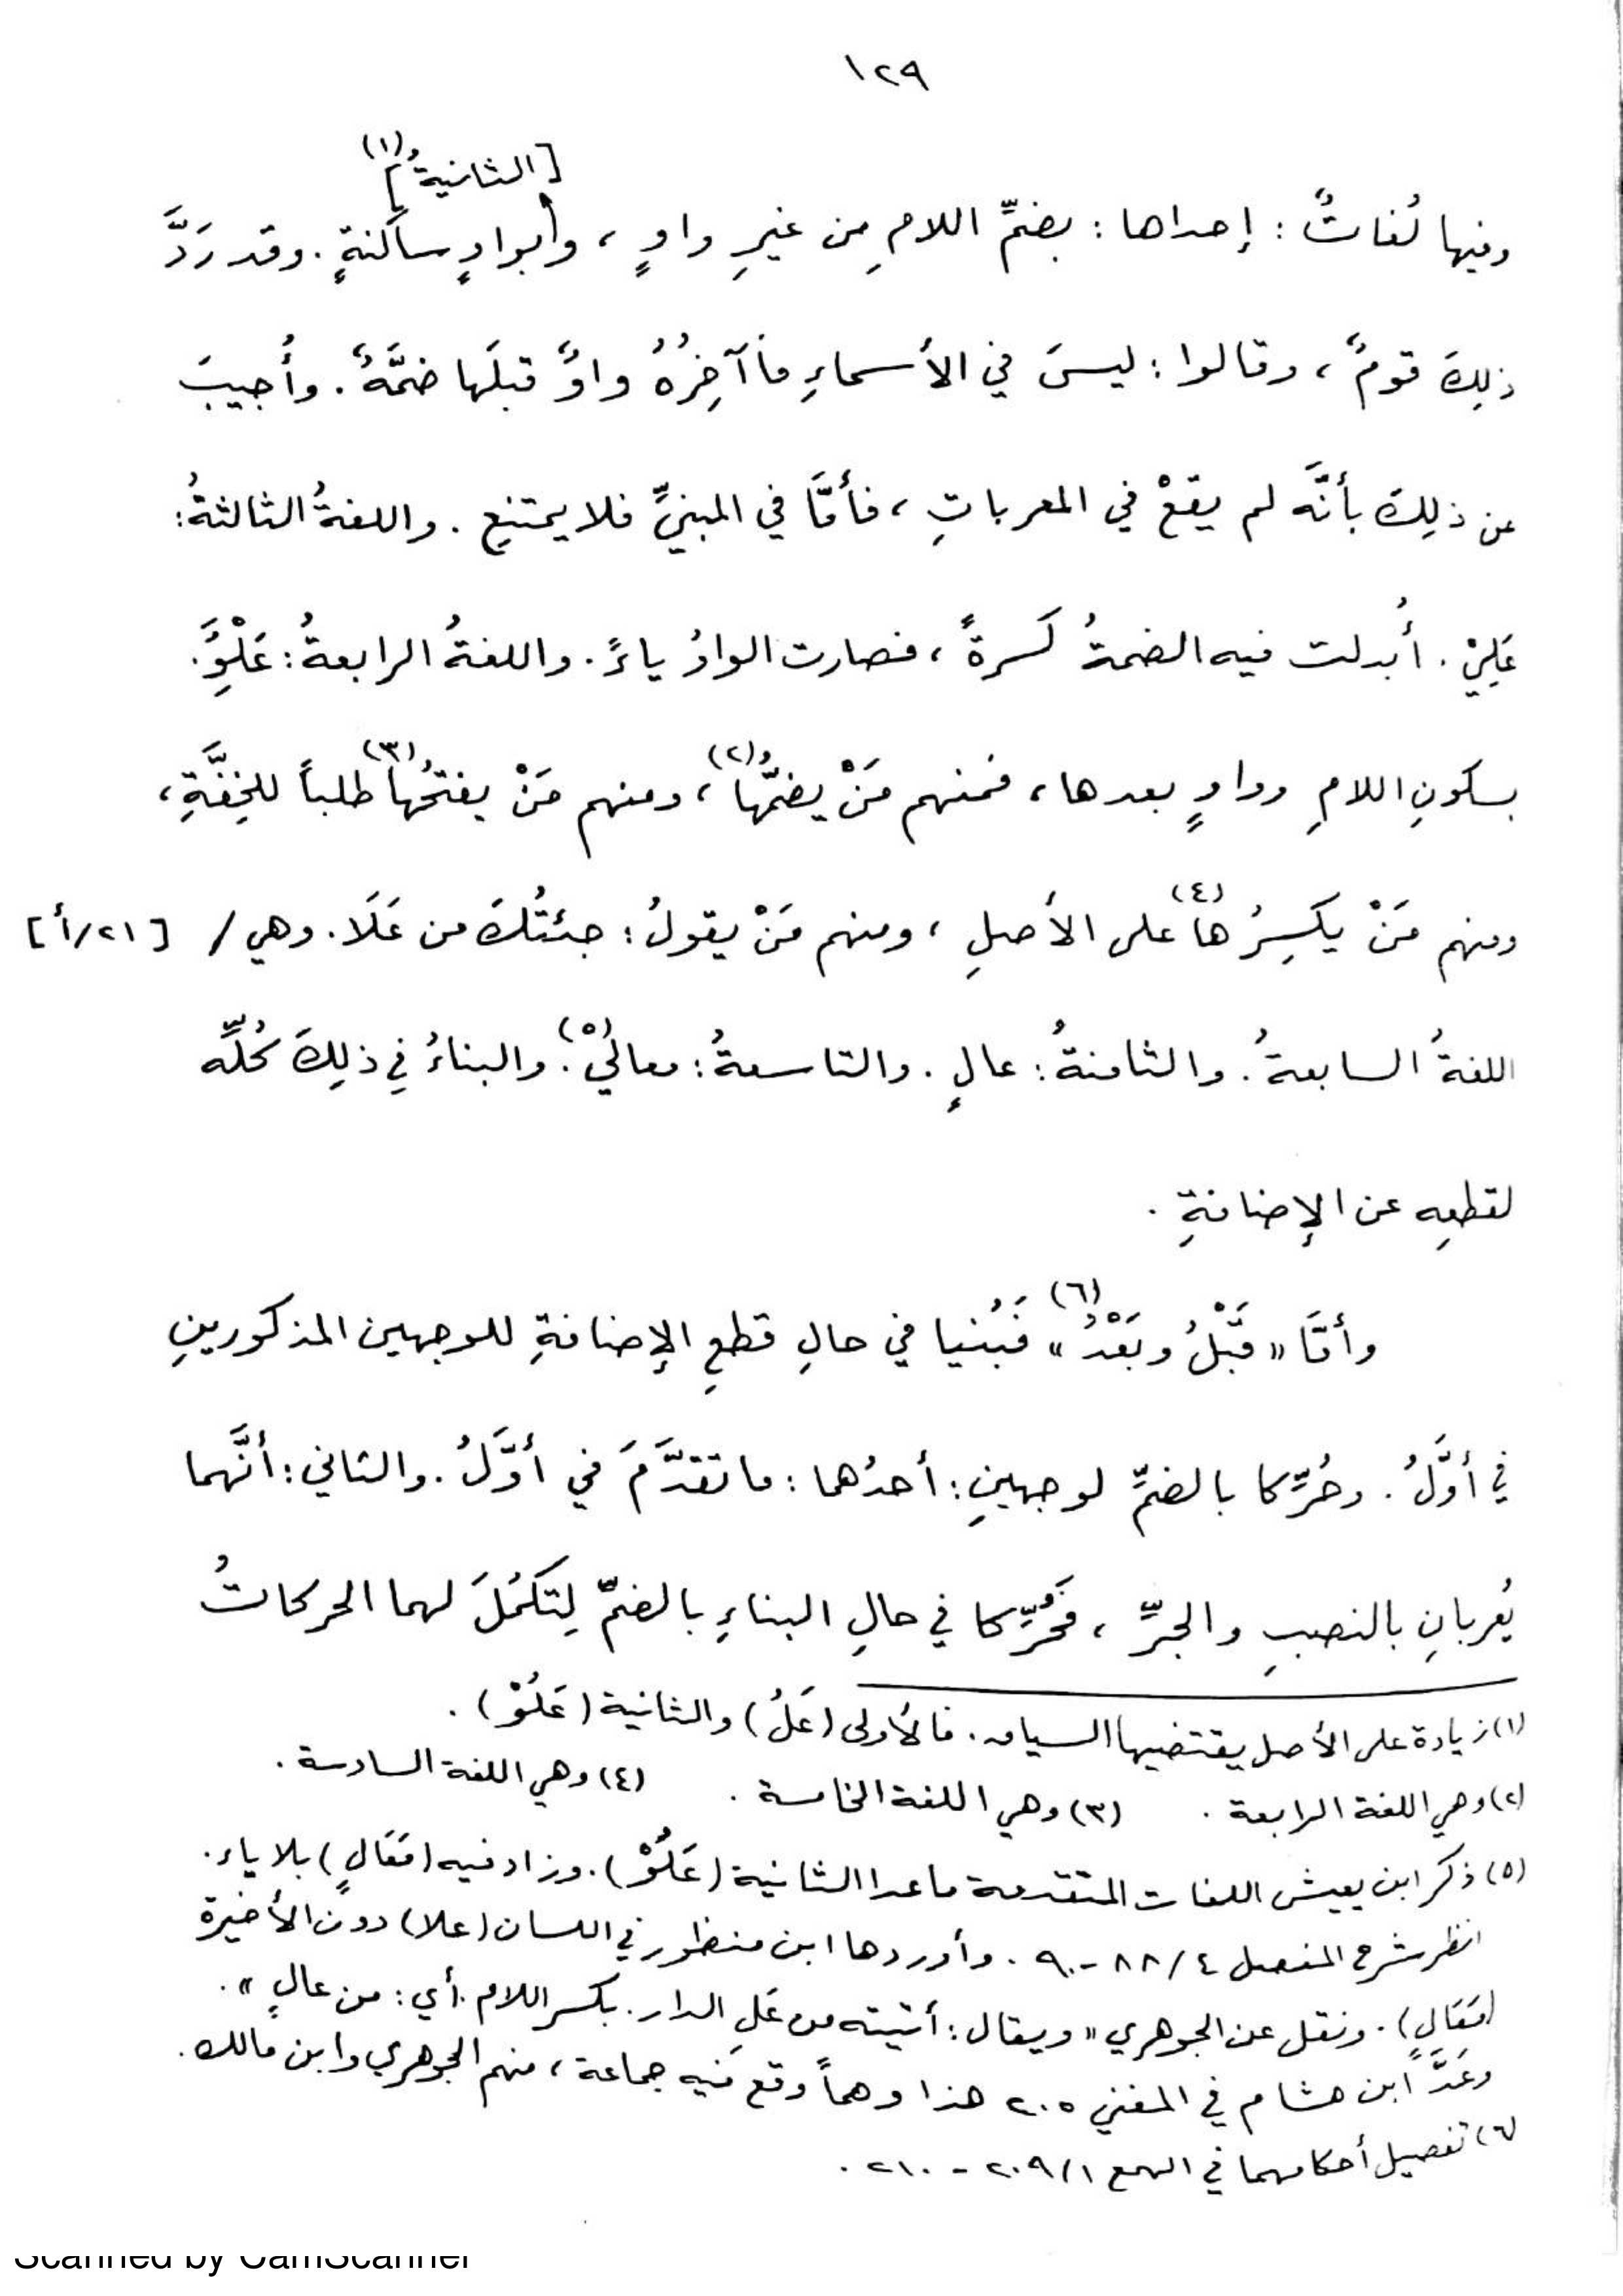 ١٢٩
[الثانيةُ](١)
وفيها لُغاتٌ : إحداها : بضمِّ اللامِ مِن غيرِ واوٍ ، و بواوٍ ساكنةٍ . وقد رَدَّ
ذلِكَ قومٌ ، وقالوا : ليسَ في الأسماءِ ما آخِرُهُ واوٌ قبلَها ضمَّةٌ . وأُجيبَ
عن ذلِكَ بأنَّه لم يقعْ في المعرباتِ ، فأمَّا في المبنيِّ فلا يمتنِع . واللغةُ الثالثةُ :
عَلِيْ . أُبدلت فيه الضمةُ كَسرةً ، فصارت الواوُ ياءً . واللغةُ الرابعةُ : عَلْوُِ .
بسكونِ اللامِ وواوٍ بعدها ، فمنهم مَنْ يضمُّها(٢) ، ومنهم مَنْ يفتحُها(٣) طلباً للخِفَّةِ ،
ومنهم مَنْ يكسِرُها(٤) على الأصلِ ، ومنهم مَنْ يقولُ : جئتُكَ من عَلَا . وهي / [٢١/أ]
اللغةُ السابعةُ . والثامنةُ : عالٍ . والتاسعةُ : معاليْ(٥) . والبناءُ في ذلِكَ كُلِّه
لقطعِه عن الإضافةِ .
وأمَّا « قَبْلُ وبَعْدُ »(٦) فَبُنيا في حالِ قطعِ الإضافةِ للوجهين المذكورينِ
في أوَّلُ . وحُرِّكا بالضمِّ لوجهينِ : أحدُهما : ما تقدَّمَ في أوَّلُ . والثاني : أنَّهما
يُعربانِ بالنصبِ والجرِّ ، فَحُرِّكا في حالِ البناءِ بالضمِّ لِتكمُلَ لهما الحركاتُ
(١) زيادة على الأصل يقتضيها السياق . فالأولى (عَلُ) والثانية (عَلُوْ) .
(٢) وهي اللغة الرابعة . (٣) وهي اللغة الخامسة . (٤) وهي اللغة السادسة .
(٥) ذكر ابن يعيش اللغات المتقدمة ما عدا الثانية (عَلُوْ) . وزاد فيه (مَعَالٍ) بلا ياء .
انظر شرح المفصل ٤/ ٨٨ - ٩٠ . وأوردها ابن منظور في اللسان (علا) دون الأخيرة
(مَعَالٍ) . ونقل عن الجوهري « ويقال : أتيته من عَلِ الدار . بكسر اللام . أي : من عالٍ » .
وعَدَّ ابن هشام في المغني ٢٠٥ هذا وهماً وقع فيه جماعة ، منهم الجوهري وابن مالك .
(٦) تفصيل أحكامهما في الهمع ١/ ٢٠٩ - ٢١٠ .
Scanned by CamScanner